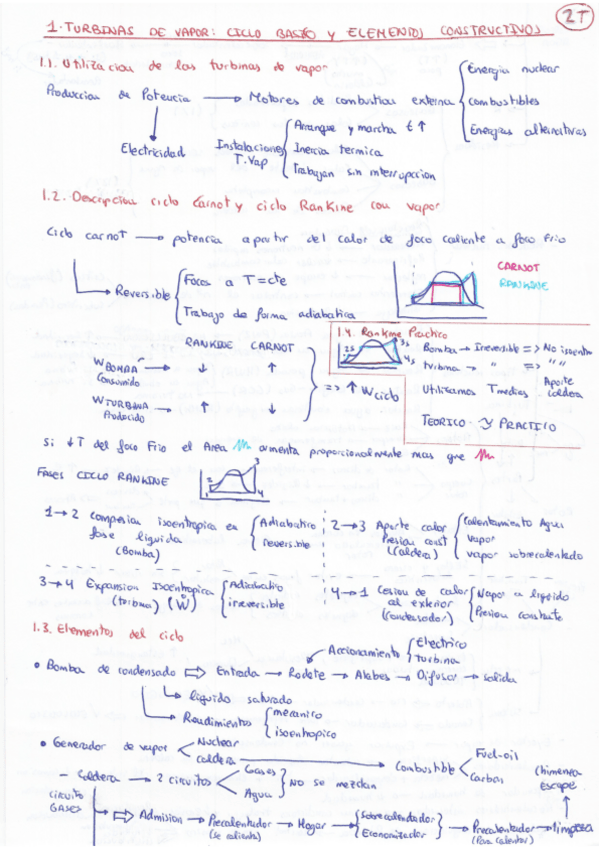 2T
1. TURBINAS DE VAPOR: CICLO BASICO y ELEMENTOS CONSTRUCTIVOS
1.1. Utilizacion de las turbinas de vapor
Produccion de Potencia → Motores de combustion externa
Energia nuclear
combustibles
Energias alternativas
Electricidad
Instalaciones T.Vap
Arranque y marcha t ↑
Inercia termica
Trabajan sin interrupcion
1.2. Descripcion ciclo Carnot y ciclo Rankine con vapor
Ciclo carnot → potencia a partir del calor de foco caliente a foco frio
Reversible
Focos a T = cte
Trabajo de forma adiabatica
CARNOT
RANKINE
RANKINE CARNOT
W BOMBA → ↓ ↑
Consumido
W TURBINA → ↑ ↓
Producido
=> ↑ W ciclo
1.4. Rankine Practico
Bomba → Irreversible => No isoentro
turbina → => " "
Utilizamos T medias
Aporte caldera
TEORICO y PRACTICO
Si ↓ T del foco Frio el Area aumenta proporcionalmente mas que
FASES CICLO RANKINE
1 2 3 4
1 → 2 Compresion isoentropica en fase liquida (Bomba)
Adiabatico
reversible
2 → 3 Aporte calor Presion const (Caldera)
Calentamiento Agua
vapor
vapor sobrecalentado
3 → 4 Expansion Isoentropica (turbina) (Ẇ)
Adiabatico
irreversible
4 → 1 Cesion de calor al exterior (condensador)
Vapor a liquido
Presion constante
1.3. Elementos del ciclo
Accionamiento
Electrico
turbina
• Bomba de condensado ⇒ Entrada → Rodete → Alabes → Difusor → salida
liquido saturado
Rendimientos
mecanico
isoentropico
• Generador de vapor
Nuclear
caldera
Combustible
Fuel-oil
Carbon
Chimenea escape
- Caldera → 2 circuitos
Gases
Agua
NO se mezclan
CIRCUITO GASES
⇒ Admision → Precalentador → Hogar →
(se calienta)
Sobrecalentador
Economizador
→ Precalentador → limpieza
(Para calentar)